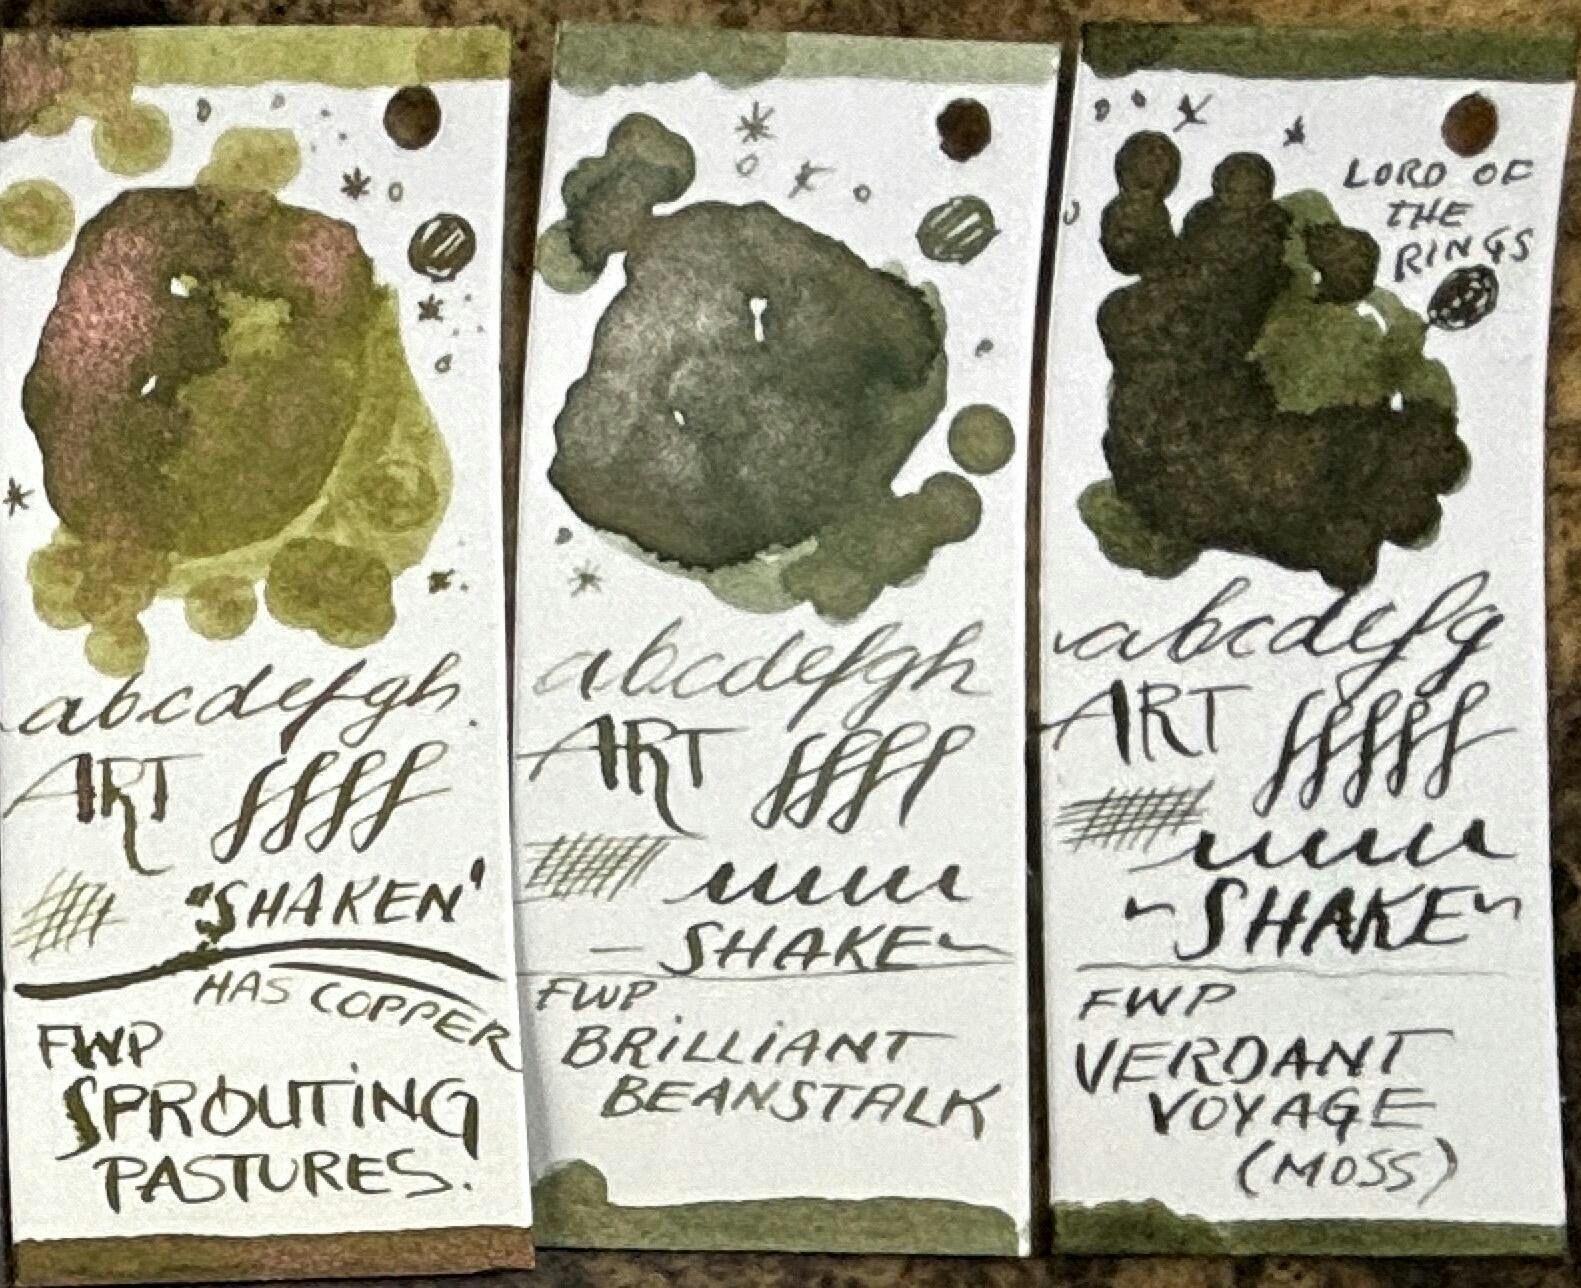 abcdefgh
ART
"SHAKEN"
HAS COPPER
FWP
SPROUTING
PASTURES.
abcdefgh
ART
SHAKE
FWP
BRILLIANT
BEANSTALK
LORD OF
THE
RINGS
abcdefg
ART
~SHAKE~
FWP
VERDANT
VOYAGE
(MOSS)